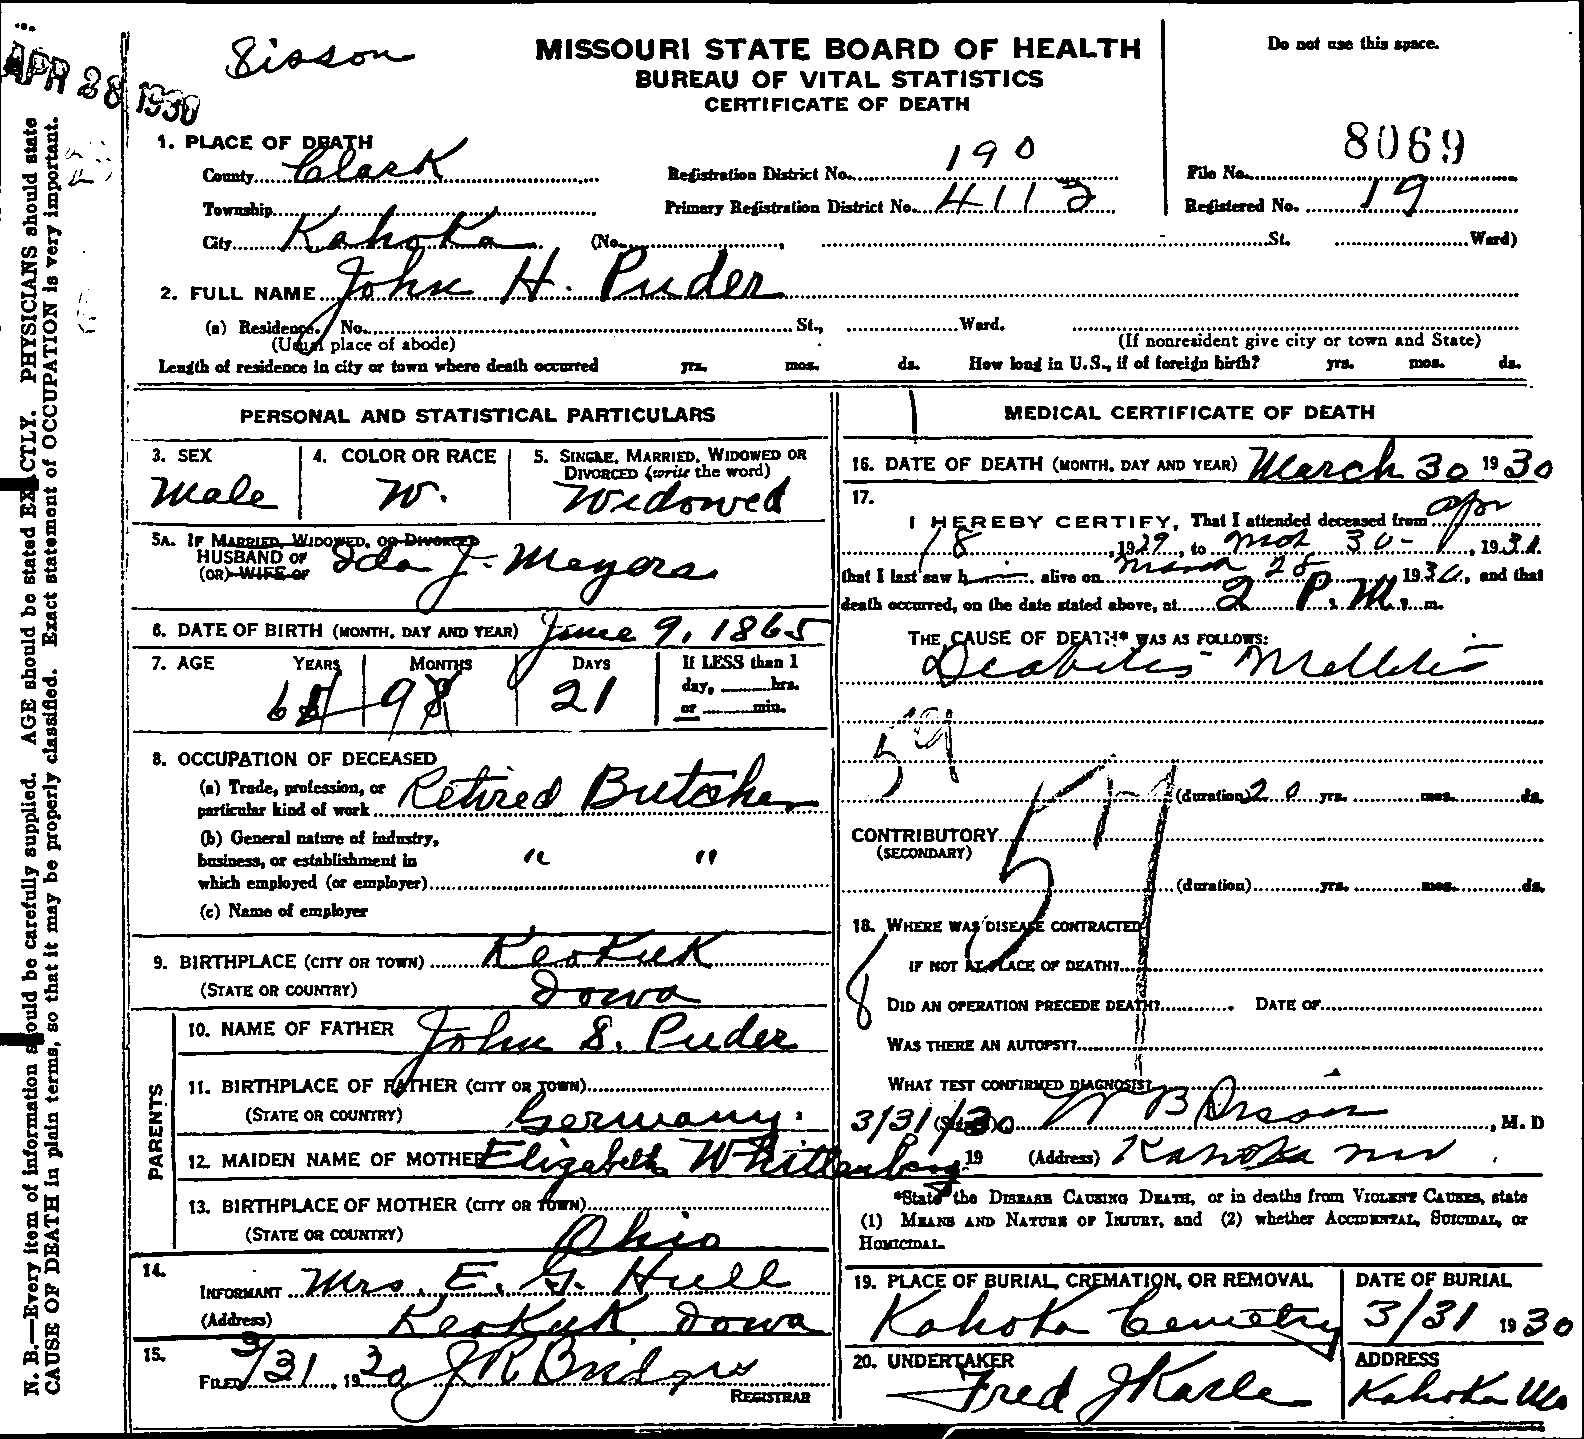 APR 28 1930
Sisson
MISSOURI STATE BOARD OF HEALTH
BUREAU OF VITAL STATISTICS
CERTIFICATE OF DEATH
Do not use this space.
1. PLACE OF DEATH
County Clark
Township
City Kahoka (No. , St. Ward)
Registration District No. 190
Primary Registration District No. 4112
File No. 8069
Registered No. 19
2. FULL NAME John H. Puder
(a) Residence. No. St., Ward.
(Usual place of abode) (If nonresident give city or town and State)
Length of residence in city or town where death occurred yrs. mos. ds. How long in U.S., if of foreign birth? yrs. mos. ds.
PERSONAL AND STATISTICAL PARTICULARS
3. SEX Male
4. COLOR OR RACE W.
5. SINGLE, MARRIED, WIDOWED OR DIVORCED (write the word) Widowed
5A. IF MARRIED, WIDOWED, OR DIVORCED
HUSBAND OF Ida J. Meyers
(OR) WIFE OF
6. DATE OF BIRTH (MONTH, DAY AND YEAR) June 9, 1865
7. AGE YEARS MONTHS DAYS If LESS than 1
day, hrs.
or min.
64 9 21
8. OCCUPATION OF DECEASED
(a) Trade, profession, or
particular kind of work Retired Butcher
(b) General nature of industry,
business, or establishment in " "
which employed (or employer)
(c) Name of employer
9. BIRTHPLACE (CITY OR TOWN) Keokuk
(STATE OR COUNTRY) Iowa
PARENTS
10. NAME OF FATHER John S. Puder
11. BIRTHPLACE OF FATHER (CITY OR TOWN)
(STATE OR COUNTRY) Germany.
12. MAIDEN NAME OF MOTHER Elizabeth Whittenberg
13. BIRTHPLACE OF MOTHER (CITY OR TOWN)
(STATE OR COUNTRY) Ohio
14.
INFORMANT Mrs. E. G. Hull
(Address) Keokuk, Iowa
15.
FILED 3/31, 1930 J R Bridges
REGISTRAR
MEDICAL CERTIFICATE OF DEATH
16. DATE OF DEATH (MONTH, DAY AND YEAR) March 30 1930
17.
I HEREBY CERTIFY, That I attended deceased from Apr
18, 1929, to Mch 30-, 1930
that I last saw h alive on March 28 1930, and that
death occurred, on the date stated above, at 2 P.M. m.
THE CAUSE OF DEATH* WAS AS FOLLOWS:
Diabetes Mellitis
59
(duration) 20 yrs. mos. ds.
57
CONTRIBUTORY
(SECONDARY)
(duration) yrs. mos. ds.
18. WHERE WAS DISEASE CONTRACTED
IF NOT AT PLACE OF DEATH?
DID AN OPERATION PRECEDE DEATH? DATE OF
WAS THERE AN AUTOPSY?
WHAT TEST CONFIRMED DIAGNOSIS?
3/31/30 (Signed) W B Sisson, M. D
19 (Address) Kahoka Mo
*State the DISEASE CAUSING DEATH, or in deaths from VIOLENT CAUSES, state
(1) MEANS AND NATURE OF INJURY, and (2) whether ACCIDENTAL, SUICIDAL, or
HOMICIDAL.
19. PLACE OF BURIAL, CREMATION, OR REMOVAL Kahoka Cemetry
DATE OF BURIAL 3/31 1930
20. UNDERTAKER Fred J Karle
ADDRESS Kahoka Mo
N. B.—Every item of information should be carefully supplied. AGE should be stated EXACTLY. PHYSICIANS should state
CAUSE OF DEATH in plain terms, so that it may be properly classified. Exact statement of OCCUPATION is very important.